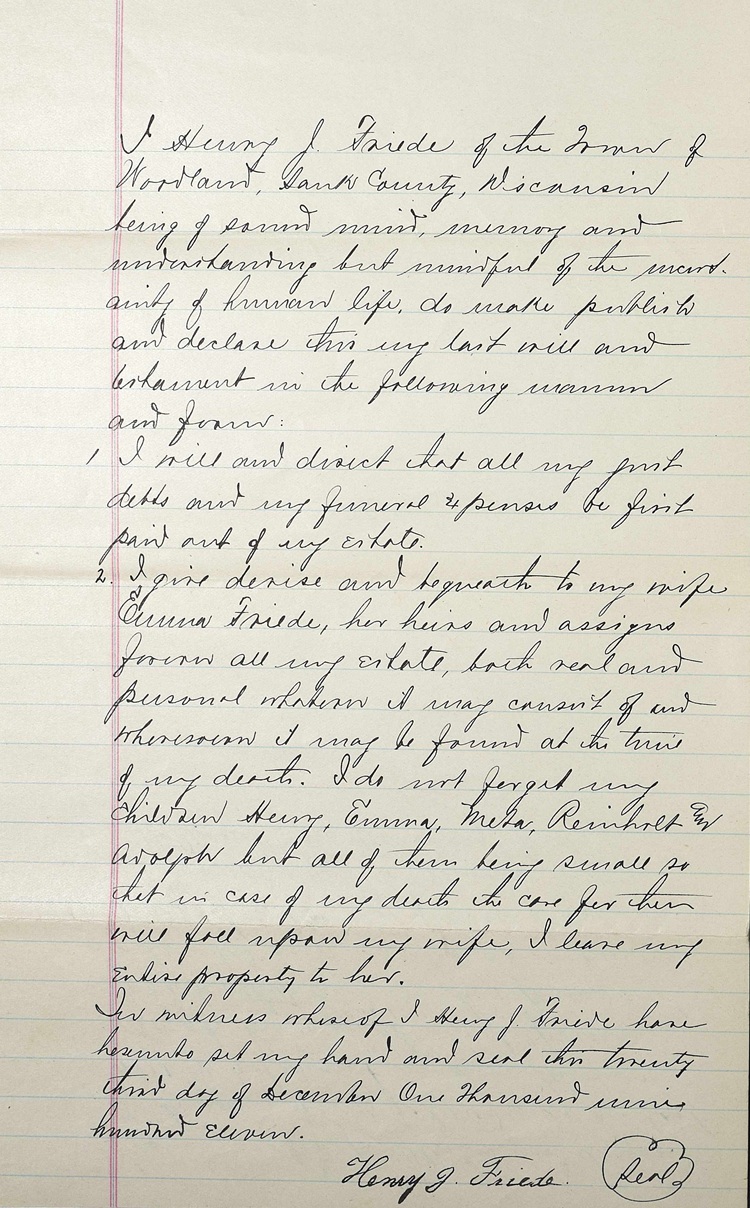 I Henry J. Friede of the Town of
Woodland, Sauk County, Wisconsin
being of sound mind, memory and
understanding but mindful of the uncert-
ainty of human life, do make publish
and declare this my last will and
testament in the following manner
and form:
1 I will and direct that all my just
debts and my funeral expenses be first
paid out of my estate.
2. I give devise and bequeath to my wife
Emma Friede, her heirs and assigns
forever all my estate, both real and
personal whatever it may consist of and
wheresoever it may be found at the time
of my death. I do not forget my
children Henry, Emma, Meta, Reinholt and
Adolph but all of them being small so
that in case of my death the care for them
will fall upon my wife, I leave my
entire property to her.
In witness whereof I Henry J. Friede have
hereunto set my hand and seal this twenty
third day of December One Thousand nine
hundred Eleven.
Henry J. Friede. Seal